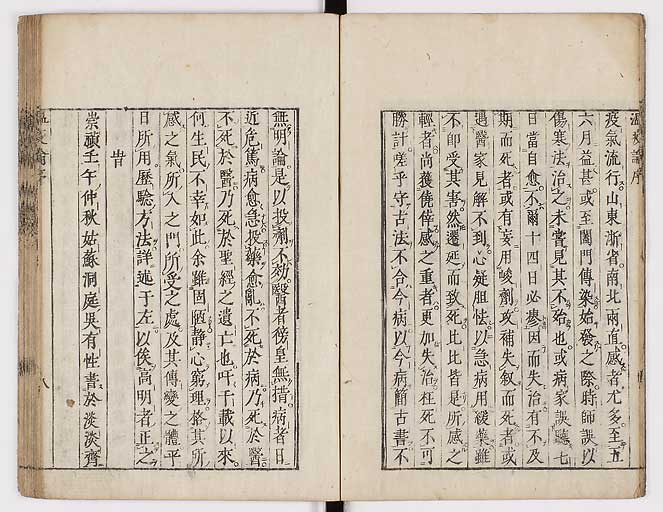 溫疫論序
疫氣流行山東浙省南北兩直感者尤多至五
六月益甚或至闔門傳染始發之際時師誤以
傷寒法治之未嘗見其不殆也或病家誤聽七
日當自愈不爾十四日必瘳因而失治有不及
期而死者或有妄用峻劑攻補失叙而死者或
遇醫家見解不到心疑胆怯以急病用緩藥雖
不即受其害然遷延而致死比比皆是所感之
輕者尚獲僥倖感之重者更加失治枉死不可
勝計嗟乎守古法不合今病以今病簡古書不
無明論是以投劑不効醫者傍皇無措病者日
近危篤病愈急投藥愈亂不死於病乃死於醫
不死於醫乃死於聖經之遺亡也吁千載以來
何生民不幸如此余雖固陋静心窮理格其所
感之氣所入之門所受之處及其傳變之體平
日所用歷驗方法詳述于左以俟高明者正之
旹
崇禎壬午仲秋姑蘇洞庭吳有性書於淡淡齊
八